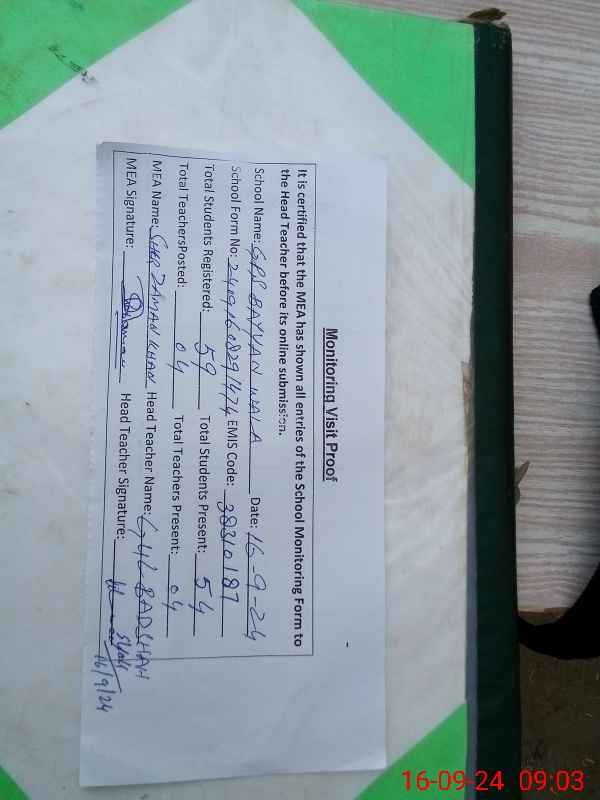 Monitoring Visit Proof
It is certified that the MEA has shown all entries of the School Monitoring Form to
the Head Teacher before its online submission.
School Name: GPS BAYVAN WALA Date: 16-9-24
School Form No: 24091608291474 EMIS Code: 38310187
Total Students Registered: 59 Total Students Present: 54
Total TeachersPosted: 04 Total Teachers Present: 04
MEA Name: SHER ZAMAN KHAN Head Teacher Name: GUL BADSHAH
MEA Signature: Head Teacher Signature:
16/9/24
16-09-24 09:03